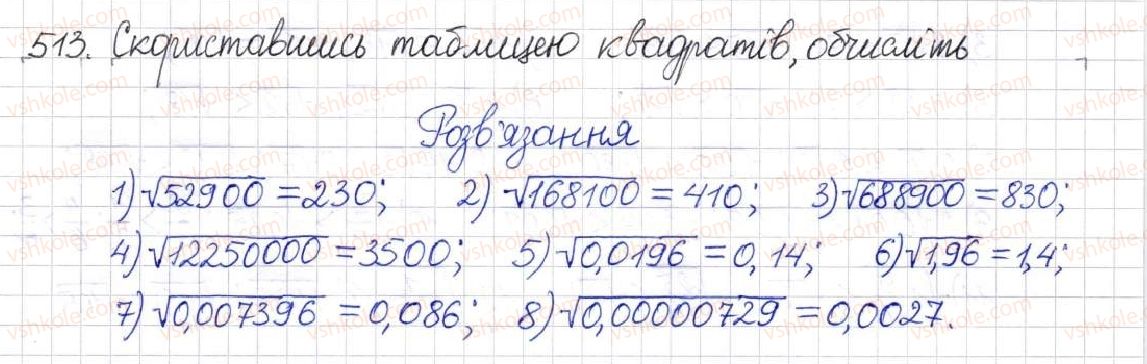 513. Скориставшись таблицею квадратів, обчисліть
Розв'язання
1) √52900 = 230; 2) √168100 = 410; 3) √688900 = 830;
4) √12250000 = 3500; 5) √0,0196 = 0,14; 6) √1,96 = 1,4;
7) √0,007396 = 0,086; 8) √0,00000729 = 0,0027.